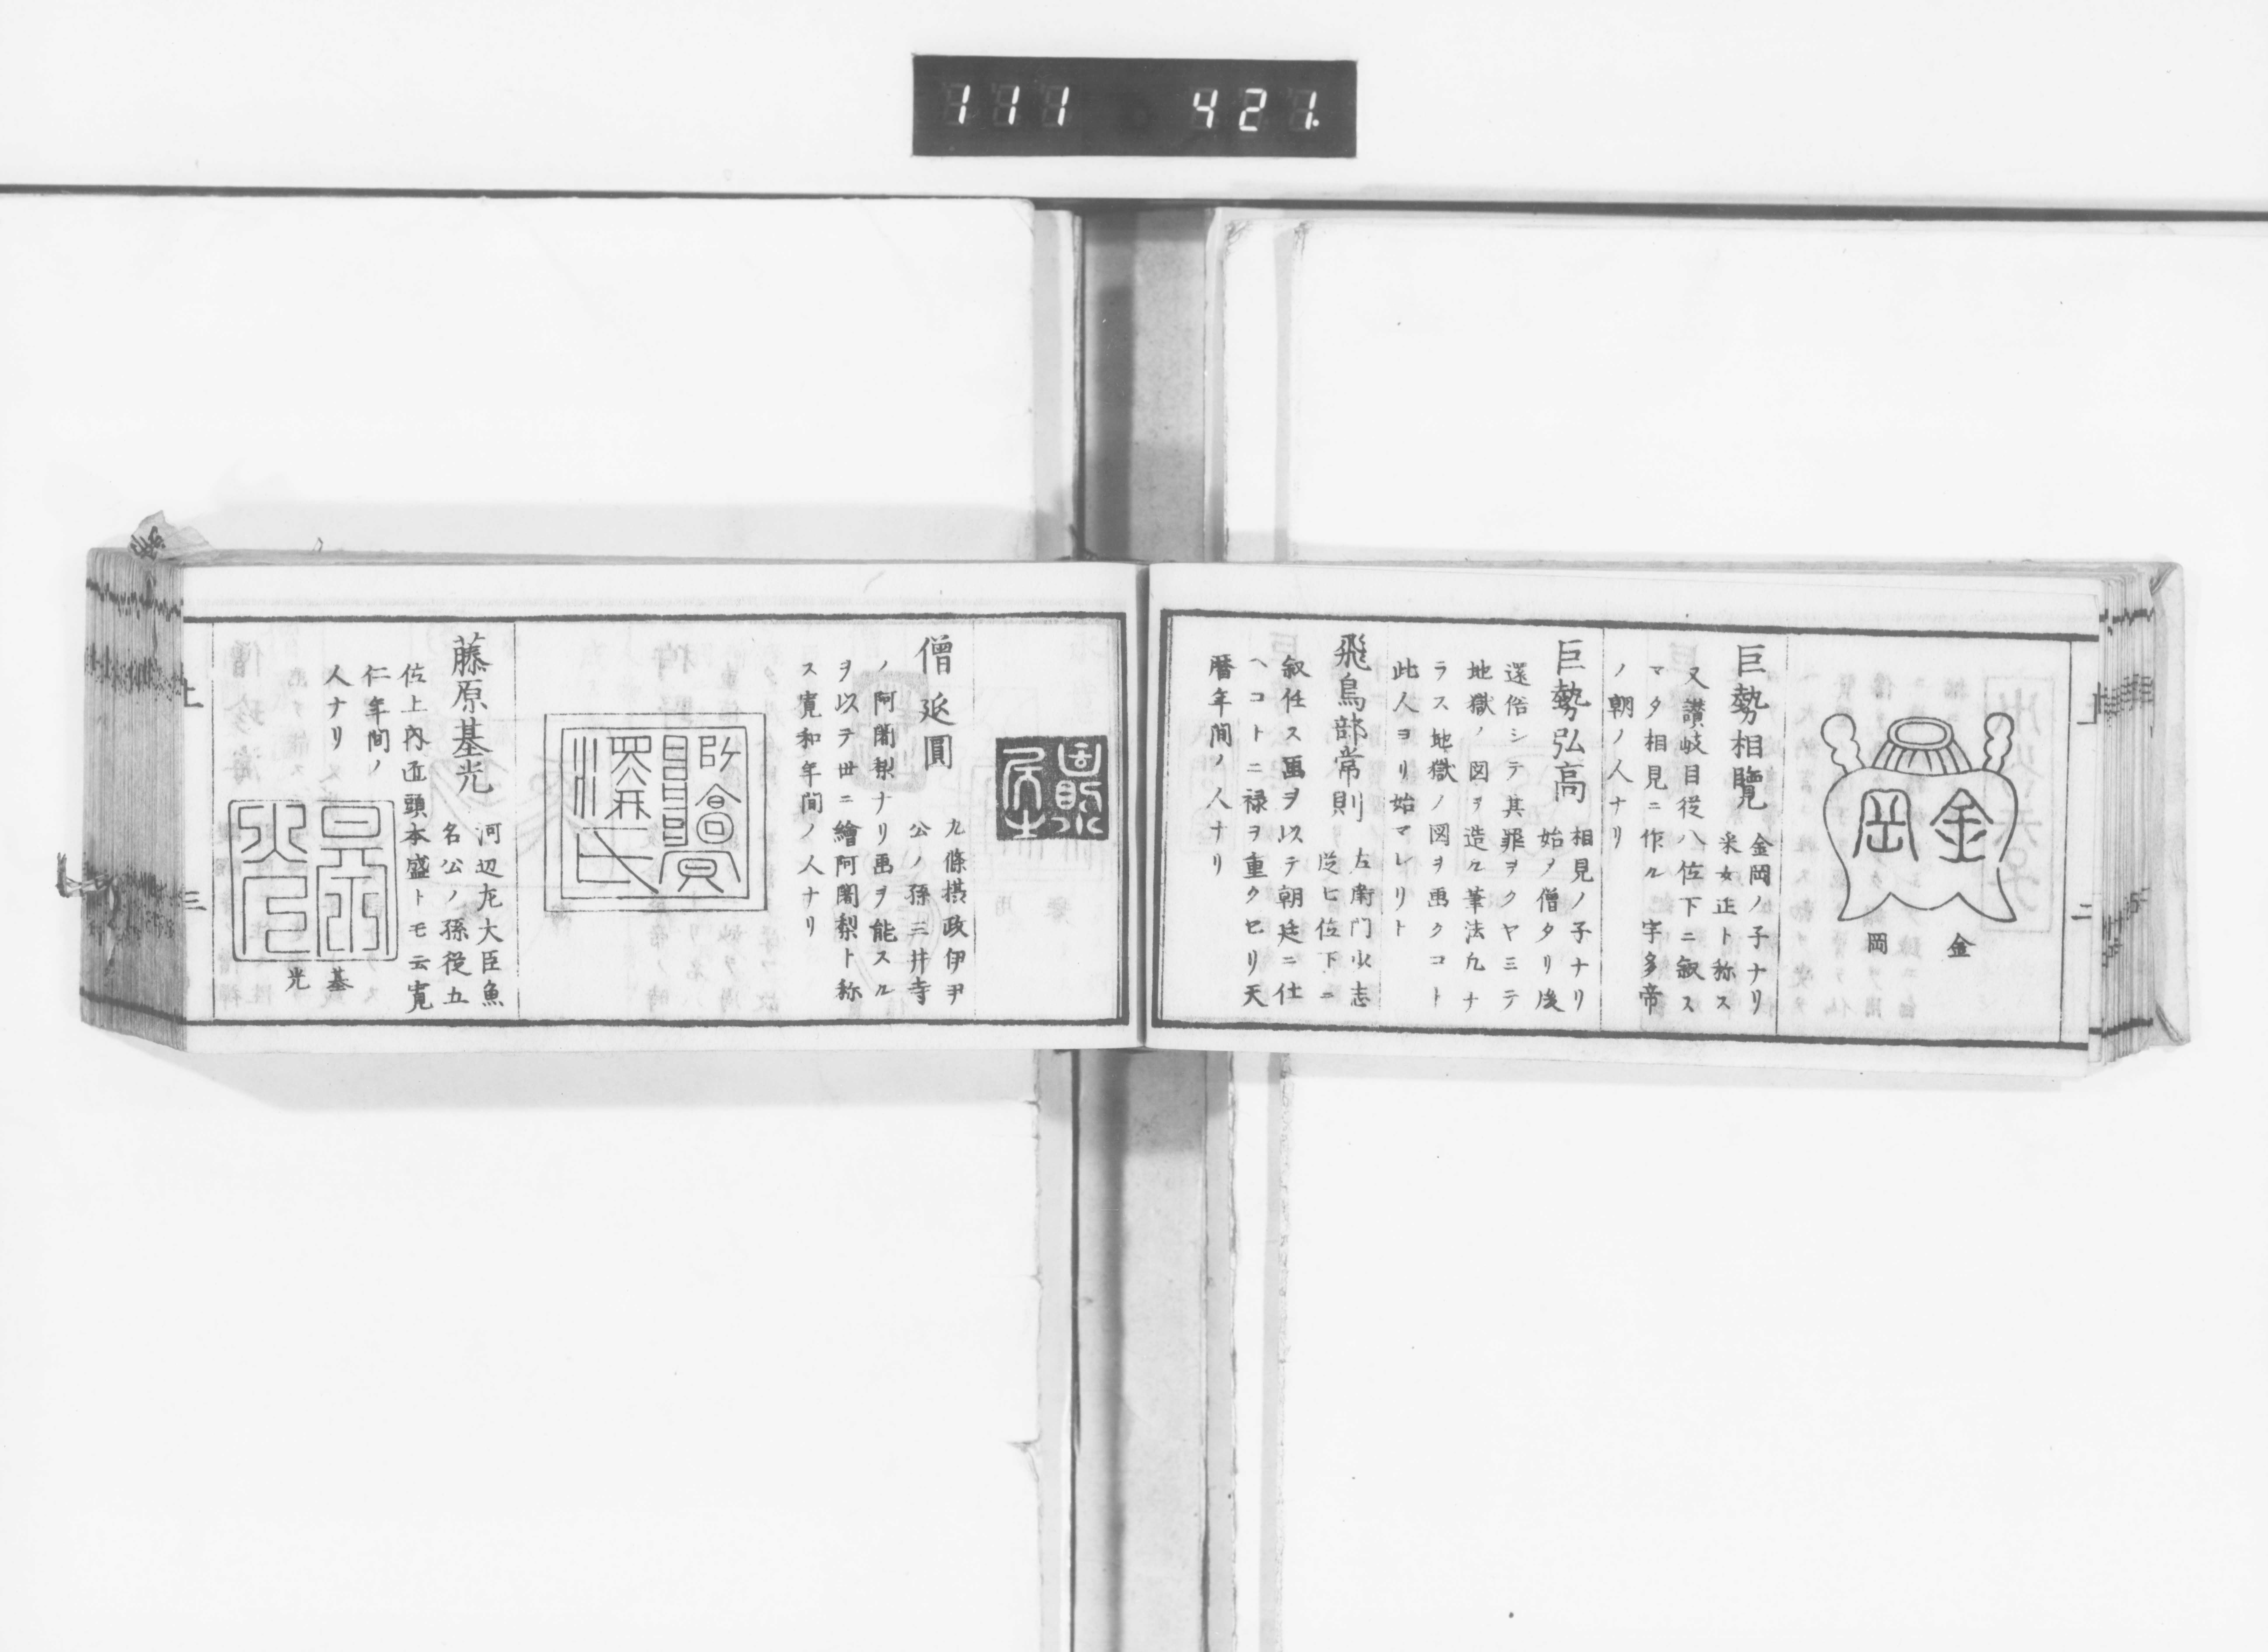 111 421.
金岡
金
岡
巨勢相覽
金岡ノ子ナリ
采女正ト称ス
又讃岐目従八位下ニ叙ス
マタ相見ニ作ル 宇多帝
ノ朝ノ人ナリ
巨勢弘高
相見ノ子ナリ
始メ僧タリ後
還俗シテ其罪ヲクヤミテ
地獄ノ図ヲ造ル筆法凡ナ
ラス地獄ノ図ヲ画クコト
此人ヨリ始マレリト
飛鳥部常則
左衛門少志
従七位下ニ
叙任ス画ヲ以テ朝廷ニ仕
ヘコトニ禄ヲ重クセリ天
暦年間ノ人ナリ
二
僧延圓
九條摂政伊尹
公ノ孫三井寺
ノ阿闍梨ナリ画ヲ能スル
ヲ以テ世ニ繪阿闍梨ト称
ス寛和年間ノ人ナリ
藤原基光
河辺左大臣魚
名公ノ孫従五
佐上内匠頭本盛トモ云寛
仁年間ノ
人ナリ
基
光
上
三